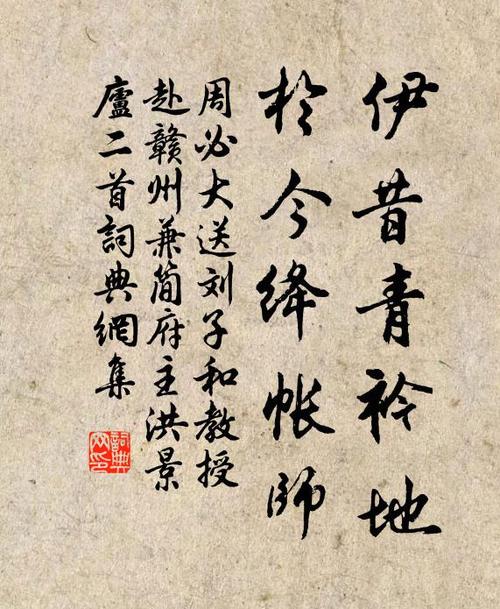 伊昔青衿地
於今绛帐師
周必大送刘子和教授
赴赣州兼简府主洪景
廬二首詞典網集
詞典网印